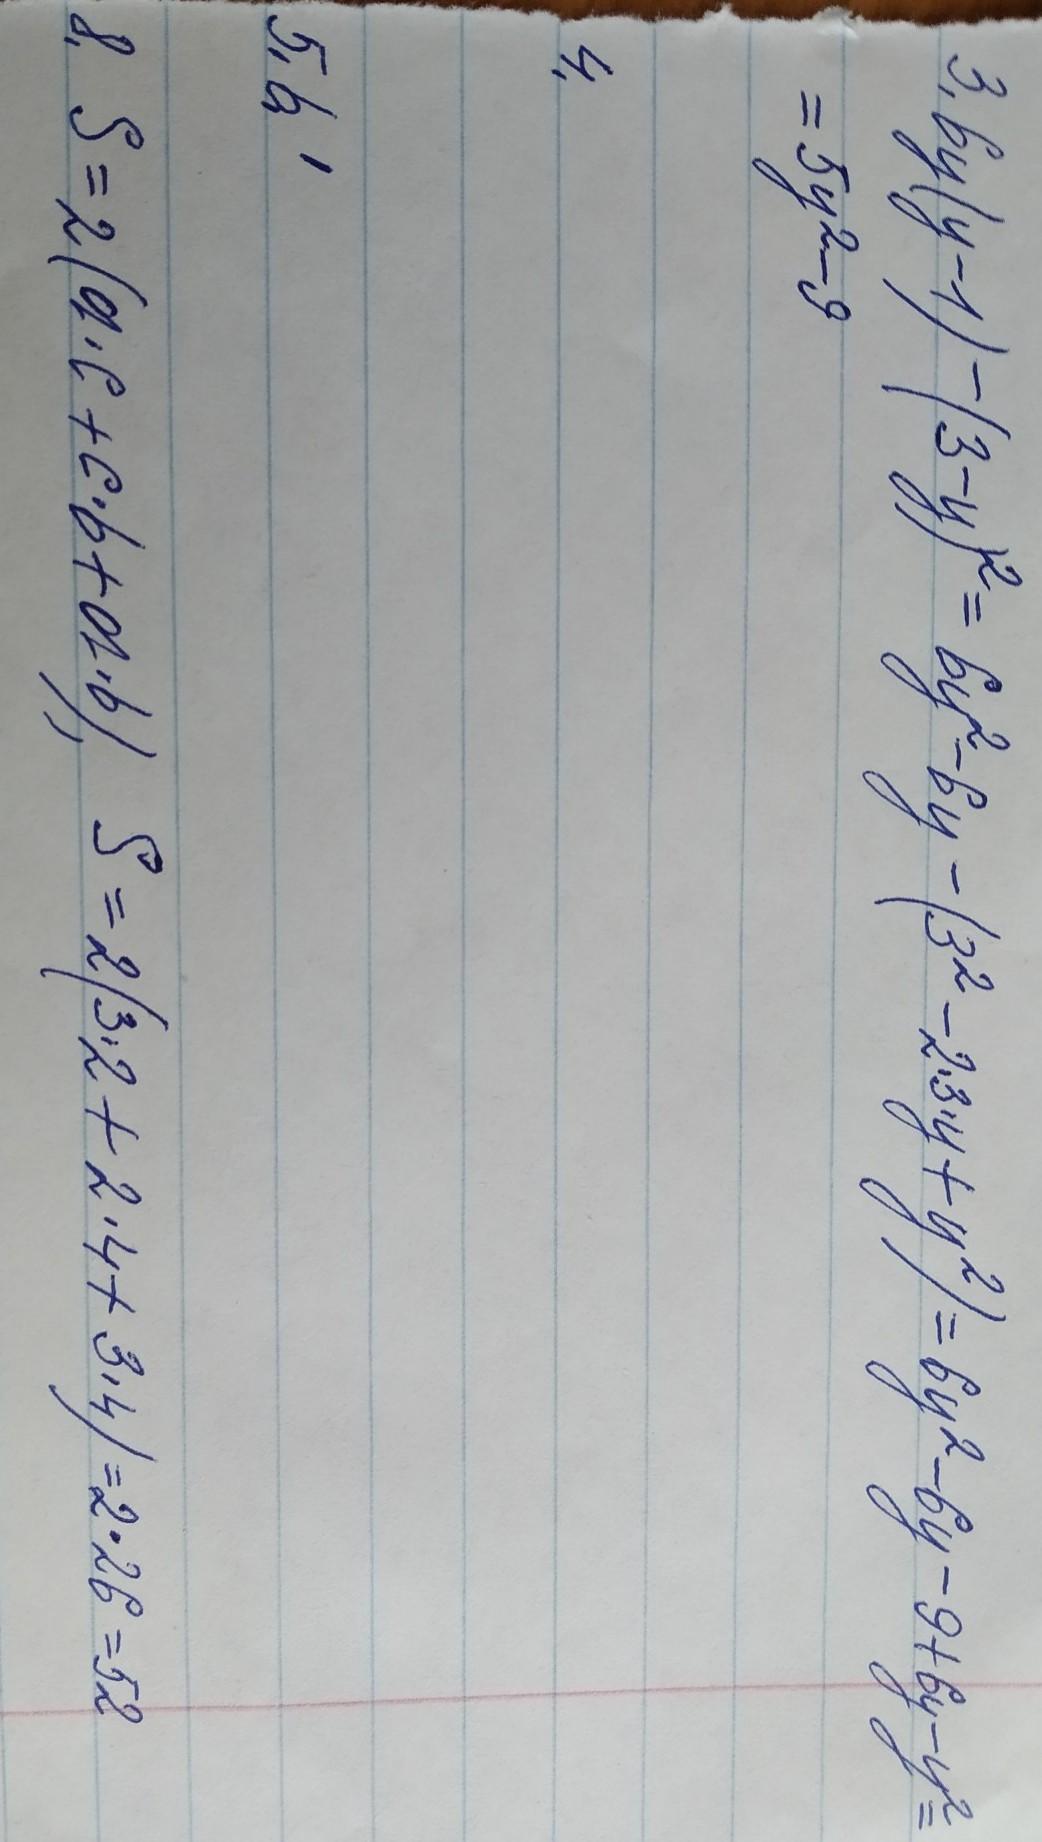 3. 6y(y-1)-(3-y)²= 6y²-6y-(3²-2·3·y+y²)=6y²-6y-9+6y-y²=
= 5y²-9
4.
5.
8. S=2(a·c+c·b+a·b), S=2(3·2+2·4+3·4)=2·26=52